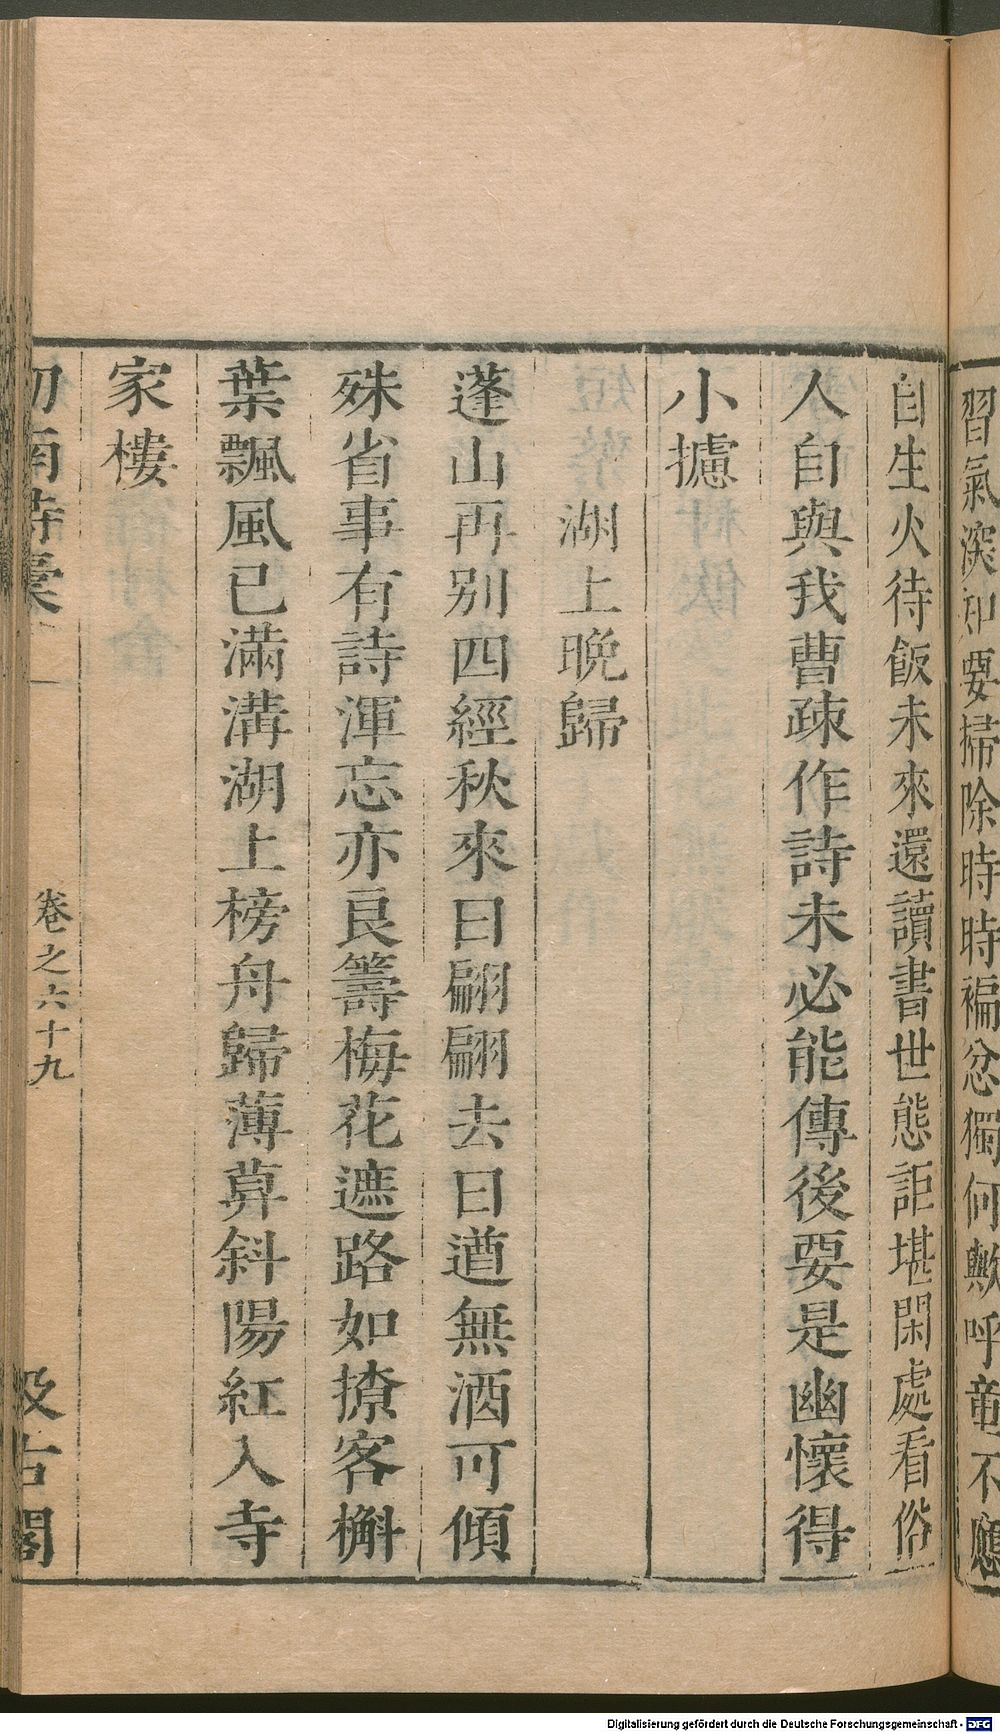 習氣深知要掃除時時褊忿獨何歟呼童不應
自生火待飯未來還讀書世態詎堪閑處看俗
人自與我曹疎作詩未必能傳後要是幽懷得
小攄
湖上晚歸
蓬山再別四經秋來日翩翩去日遒無酒可傾
殊省事有詩渾忘亦良籌梅花遮路如撩客槲
葉飄風已滿溝湖上榜舟歸薄莫斜陽紅入寺
家樓
劎南詩稾
卷之六十九
汲古閣
Digitalisierung gefördert durch die Deutsche Forschungsgemeinschaft - DFG